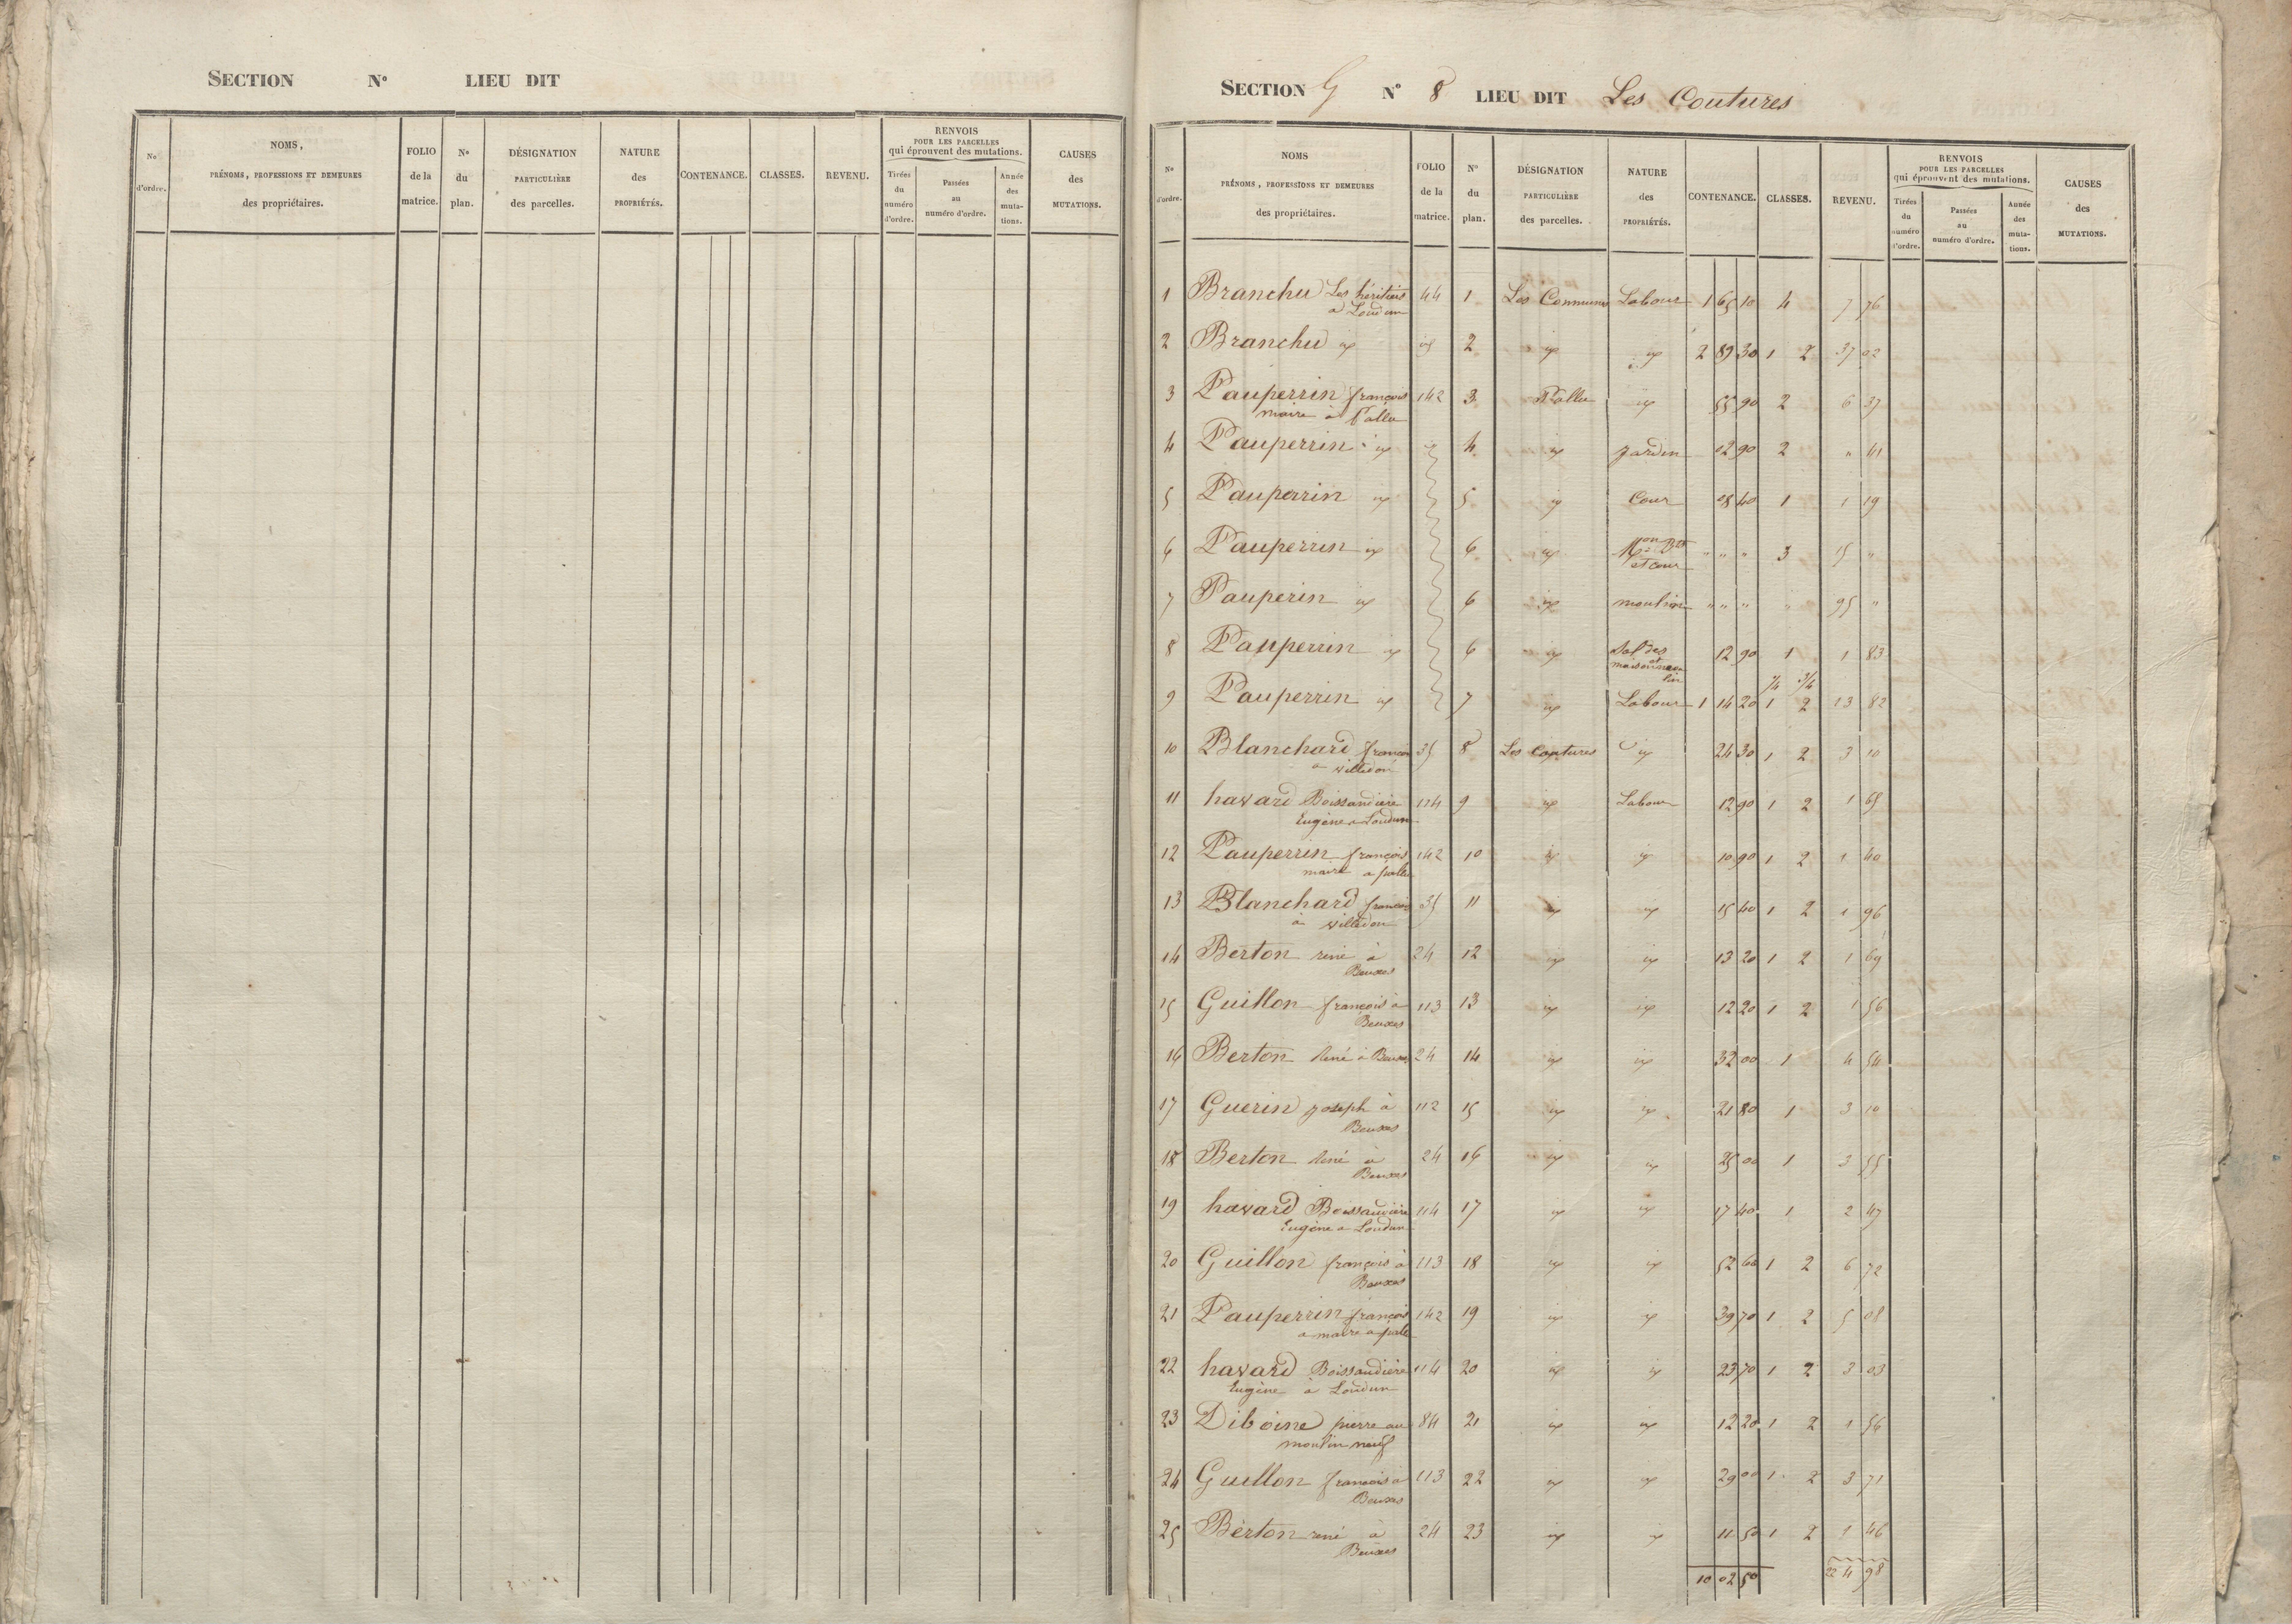 SECTION N° LIEU DIT
N° d'ordre. NOMS, PRÉNOMS, PROFESSIONS ET DEMEURES des propriétaires. FOLIO de la matrice. N° du plan. DÉSIGNATION PARTICULIÈRE des parcelles. NATURE des PROPRIÉTÉS. CONTENANCE. CLASSES. REVENU. RENVOIS POUR LES PARCELLES qui éprouvent des mutations. Tirées du numéro d'ordre. Passées au numéro d'ordre. Année des muta-tions. CAUSES des MUTATIONS.
SECTION G N° 8 LIEU DIT Les Coutures
N° d'ordre. NOMS PRÉNOMS, PROFESSIONS ET DEMEURES des propriétaires. FOLIO de la matrice. N° du plan. DÉSIGNATION PARTICULIÈRE des parcelles. NATURE des PROPRIÉTÉS. CONTENANCE. CLASSES. REVENU. RENVOIS POUR LES PARCELLES qui éprouvent des mutations. Tirées du numéro d'ordre. Passées au numéro d'ordre. Année des muta-tions. CAUSES des MUTATIONS.
1 Branchu Les héritiers 44 1 Les Communes Labour 1 65 10 4 7 76
a Loudun
2 Branchu id id 2 id id 2 89 30 1 2 37 02
3 Pauperrin françois 142 3 Pallu id 55 90 2 6 37
maire à Pallu
4 Pauperrin id id 4 id jardin 02 90 2 " 41
5 Pauperrin id 5 id Cour 08 40 1 1 19
6 Pauperrin id 6 id Mon Bat " " " 3 15 "
et cour
7 Pauperin id 6 id moulin " " " " 95 "
8 Pauperrin id 6 id Sol des 12 90 1 1 83
maisons et mou
lin
1/4 3/4
9 Pauperrin id 7 id Labour 1 14 20 1 2 13 82
10 Blanchard françois 35 8 Les Coutures id 24 30 1 2 3 10
a villedon
11 havard Boissandière 114 9 id Labour 12 90 1 2 1 65
Eugène a Loudun
12 Pauperrin françois 142 10 id id 10 90 1 2 1 40
maire a pallu
13 Blanchard françois 35 11 id id 15 40 1 2 1 96
à villedon
14 Berton réné à 24 12 id id 13 20 1 2 1 69
Beuxes
15 Guillon françois à 113 13 id id 12 20 1 2 1 56
Beuxes
16 Berton Réné à Beuxes 24 14 id id 32 00 1 4 54
17 Guerin joseph à 112 15 id id 21 80 1 3 10
Beuxes
18 Berton Réné a 24 16 id id 25 00 1 3 55
Beuxes
19 havard Boissandière 114 17 id id 17 40 1 2 47
Eugène a Loudun
20 Guillon françois à 113 18 id id 52 60 1 2 6 72
Beuxes
21 Pauperrin françois 142 19 id id 39 70 1 2 5 08
a maire a pallu
22 havard Boissandière 114 20 id id 23 70 1 2 3 03
Eugène à Loudun
23 Diboine pierre au 84 21 id id 12 20 1 2 1 56
moulin neuf
24 Guillon françois à 113 22 id id 29 00 1 2 3 71
Beuxes
25 Berton réné à 24 23 id id 11 50 1 2 1 46
Beuxes
10 02 50 224 98